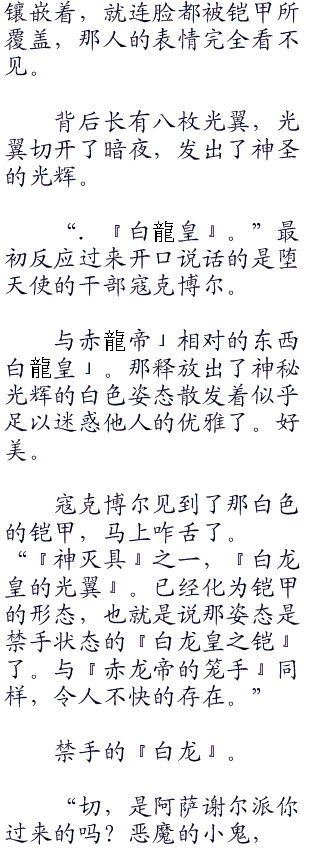 镶嵌着，就连脸都被铠甲所
覆盖，那人的表情完全看不
见。
背后长有八枚光翼，光
翼切开了暗夜，发出了神圣
的光辉。
“．『白龍皇』。”最
初反应过来开口说话的是堕
天使的干部寇克博尔。
与赤龍帝」相对的东西
白龍皇」。那释放出了神秘
光辉的白色姿态散发着似乎
足以迷惑他人的优雅了。好
美。
寇克博尔见到了那白色
的铠甲，马上咋舌了。
“『神灭具』之一，『白龙
皇的光翼』。已经化为铠甲
的形态，也就是说那姿态是
禁手状态的『白龙皇之铠』
了。与『赤龙帝的笼手』同
样，令人不快的存在。”
禁手的『白龙』。
“切，是阿萨谢尔派你
过来的吗？恶魔的小鬼，